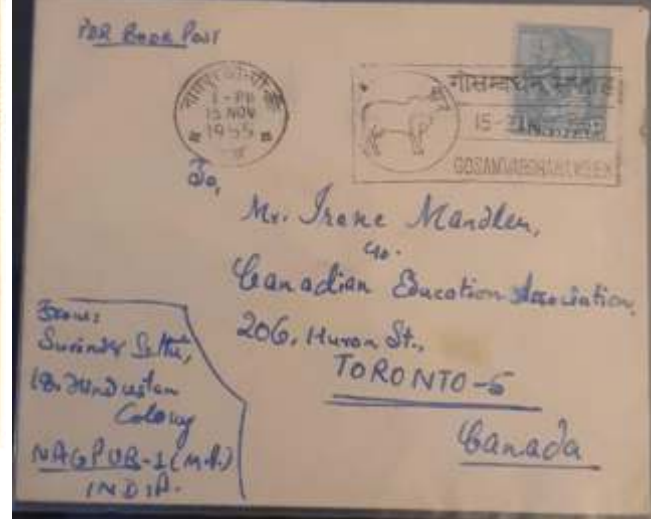 PER BOOK POST
नागपुर जी.पी.ओ.
1-PM
15 NOV
1955
गोसम्वर्धन सप्ताह
15-21
GOSAMVARDHANA WEEK
To,
Mr. Irene Mandlen,
c/o.
Canadian Education Association,
206, Huron St.,
TORONTO-5
Canada
From:
Surinder Sethi,
18, Hindustan
Colony
NAGPUR-1 (M.P.)
INDIA.